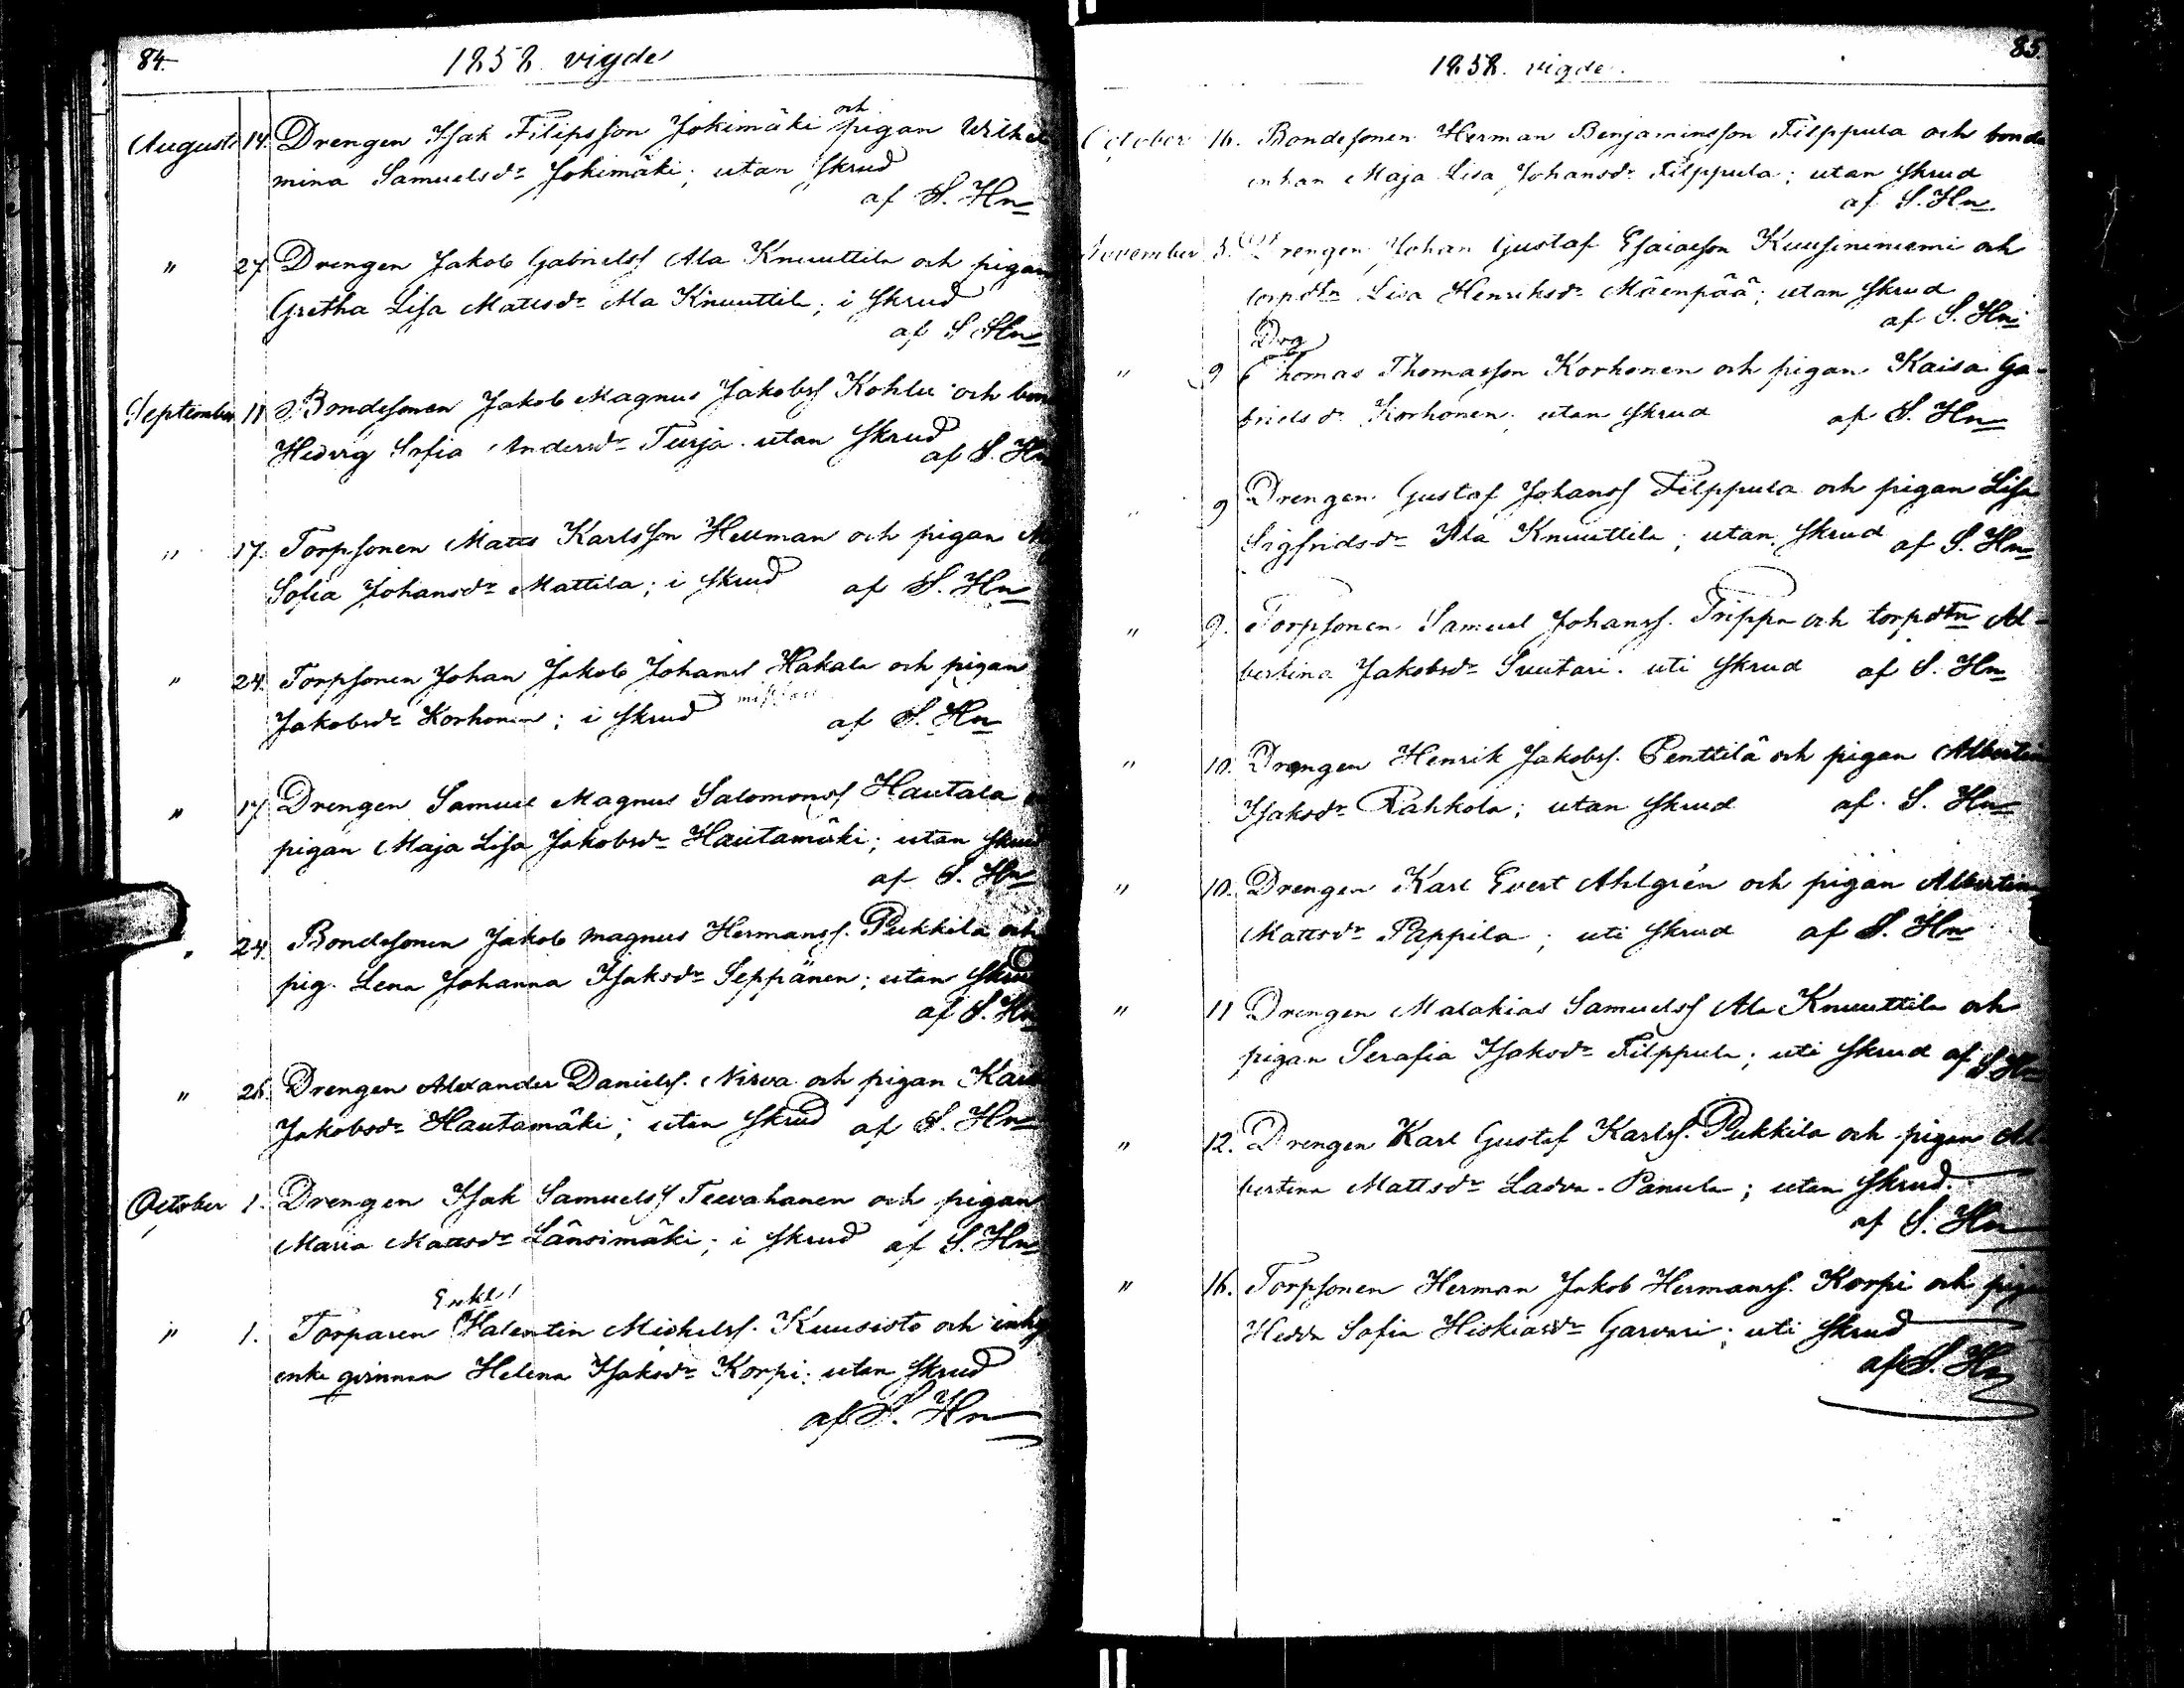 84.
1858. vigde
Augusti 14. Drengen Isak Filipsson Jokimäki och pigan Wilhel
mina Samuelsdr Jokimäki; utan skrud
af S. Hn
" 27 Drengen Jakob Gabrielss Ala Knuuttila och pigan
Gretha Lisa Mattsdr Ala Knuuttila; i skrud
af S. Hn
September 11 Bondesonen Jakob Magnus Jakobss Kohlu och bon
Hedvig Sofia Andersdr Turja. utan skrud
af S. Hn
" 17. Torpsonen Matts Karlsson Hellman och pigan
Sofia Johansdr Mattila; i skrud af S. Hn
" 24. Torpsonen Johan Jakob Johanss Hakala och pigan
Jakobsdr Korhonen; i skrud af S. Hn
" 17 Drengen Samuel Magnus Salomonss Hautala
pigan Maja Lisa Jakobsdr Hautamäki; utan skrud
af S. Hn
" 24. Bondesonen Jakob Magnus Hermanss. Pukkila och
pig. Lena Johanna Isaksdr Seppänen; utan skrud
af S. Hn
" 26. Drengen Alexander Danielss. Nirva och pigan
Jakobsdr Hautamäki; utan skrud af S. Hn
October 1. Drengen Isak Samuelss Teevahanen och pigan
Maria Mattsdr Länsimäki; i skrud af S. Hn
Enkl.
" 1. Torparen Valentin Michelss. Kuusisto och inhy
enke girinnan Helena Isaksdr Korpi; utan skrud
af S. Hn
85.
1858. vigde.
October 16. Bondesonen Herman Benjaminsson Filppula och bonde
enkan Maja Lisa Johansdr Filppula; utan skrud
af S. Hn
November 5. Drengen Johan Gustaf Esaiasson Kuusiniemi och
torpdtn Lisa Henriksdr Mäenpää; utan skrud
af S. Hn
Drg
" 9 Thomas Thomasson Korhonen och pigan Kaisa Ga-
brielsdr Korhonen; utan skrud af S. Hn
" 9 Drengen Gustaf Johanss Filppula och pigan Lisa
Sigfridsdr Ala Knuuttila; utan skrud af S. Hn
" 9. Torpsonen Samuel Johanss. Trippa och torpdtn Al-
bertina Jakobsdr Suutari. uti skrud af S. Hn
" 10. Drengen Henrik Jakobss. Penttilä och pigan Albertin
Isaksdr Rahkola; utan skrud af S. Hn
" 10. Drengen Karl Evert Ahlgrén och pigan Albertin
Mattsdr Pappila; uti skrud af S. Hn
" 11 Drengen Malakias Samuelss Ala Knuuttila och
pigan Serafia Isaksdr Filppula; uti skrud af S. Hn
" 12. Drengen Karl Gustaf Karlss. Pukkila och pigan Al
bertina Mattsdr Ladva-Panula; utan skrud.
af S. Hn
" 16. Torpsonen Herman Jakob Hermanss. Korpi och pigan
Hedda Sofia Hiskiasdr Garvari; uti skrud
af S. Hn